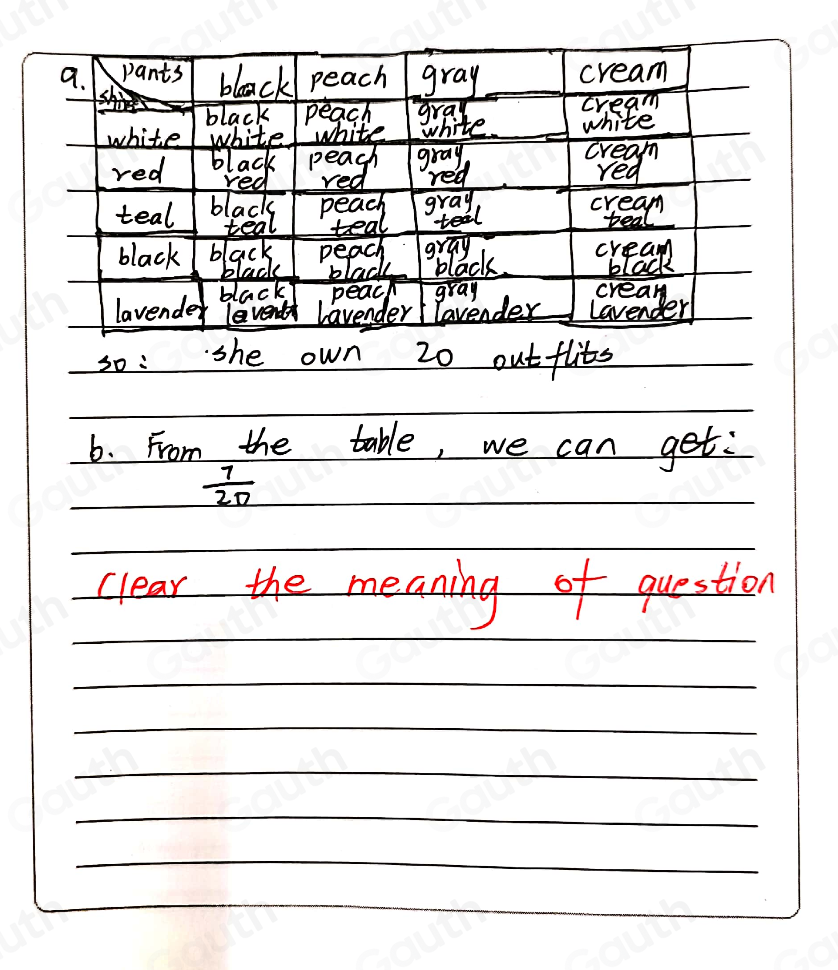 a. pants black peach gray cream
shirt
white black white peach white gray white cream white
red black red peach red gray red cream red
teal black teal peach teal gray teal cream teal
black black black peach black gray black cream black
lavender black peach lavender gray lavender cream Lavender
so: she own 20 outflits
b. From the table, we can get:
7
20
Clear the meaning of question
Gauth